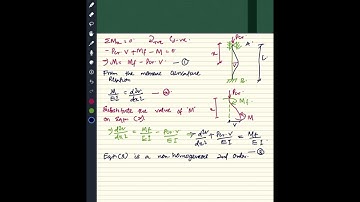 ΣM = 0
- Pcr·v + Mf - M = 0
⇒ M = Mf - Pcr·v — ①
From the moment curvature
Relation
M/EI = d²v/dx² — ②
Substitute the value of 'M'
on Eqtn (2).
⇒ d²v/dx² = Mf/EI - Pcr·v/EI ⇒ d²v/dx² + Pcr·v/EI = Mf/EI — ③
Eqtn (3) is a non homogeneous 2nd order.
Pcr
A
x
L
v
B
Pcr
Mf
x
M
v